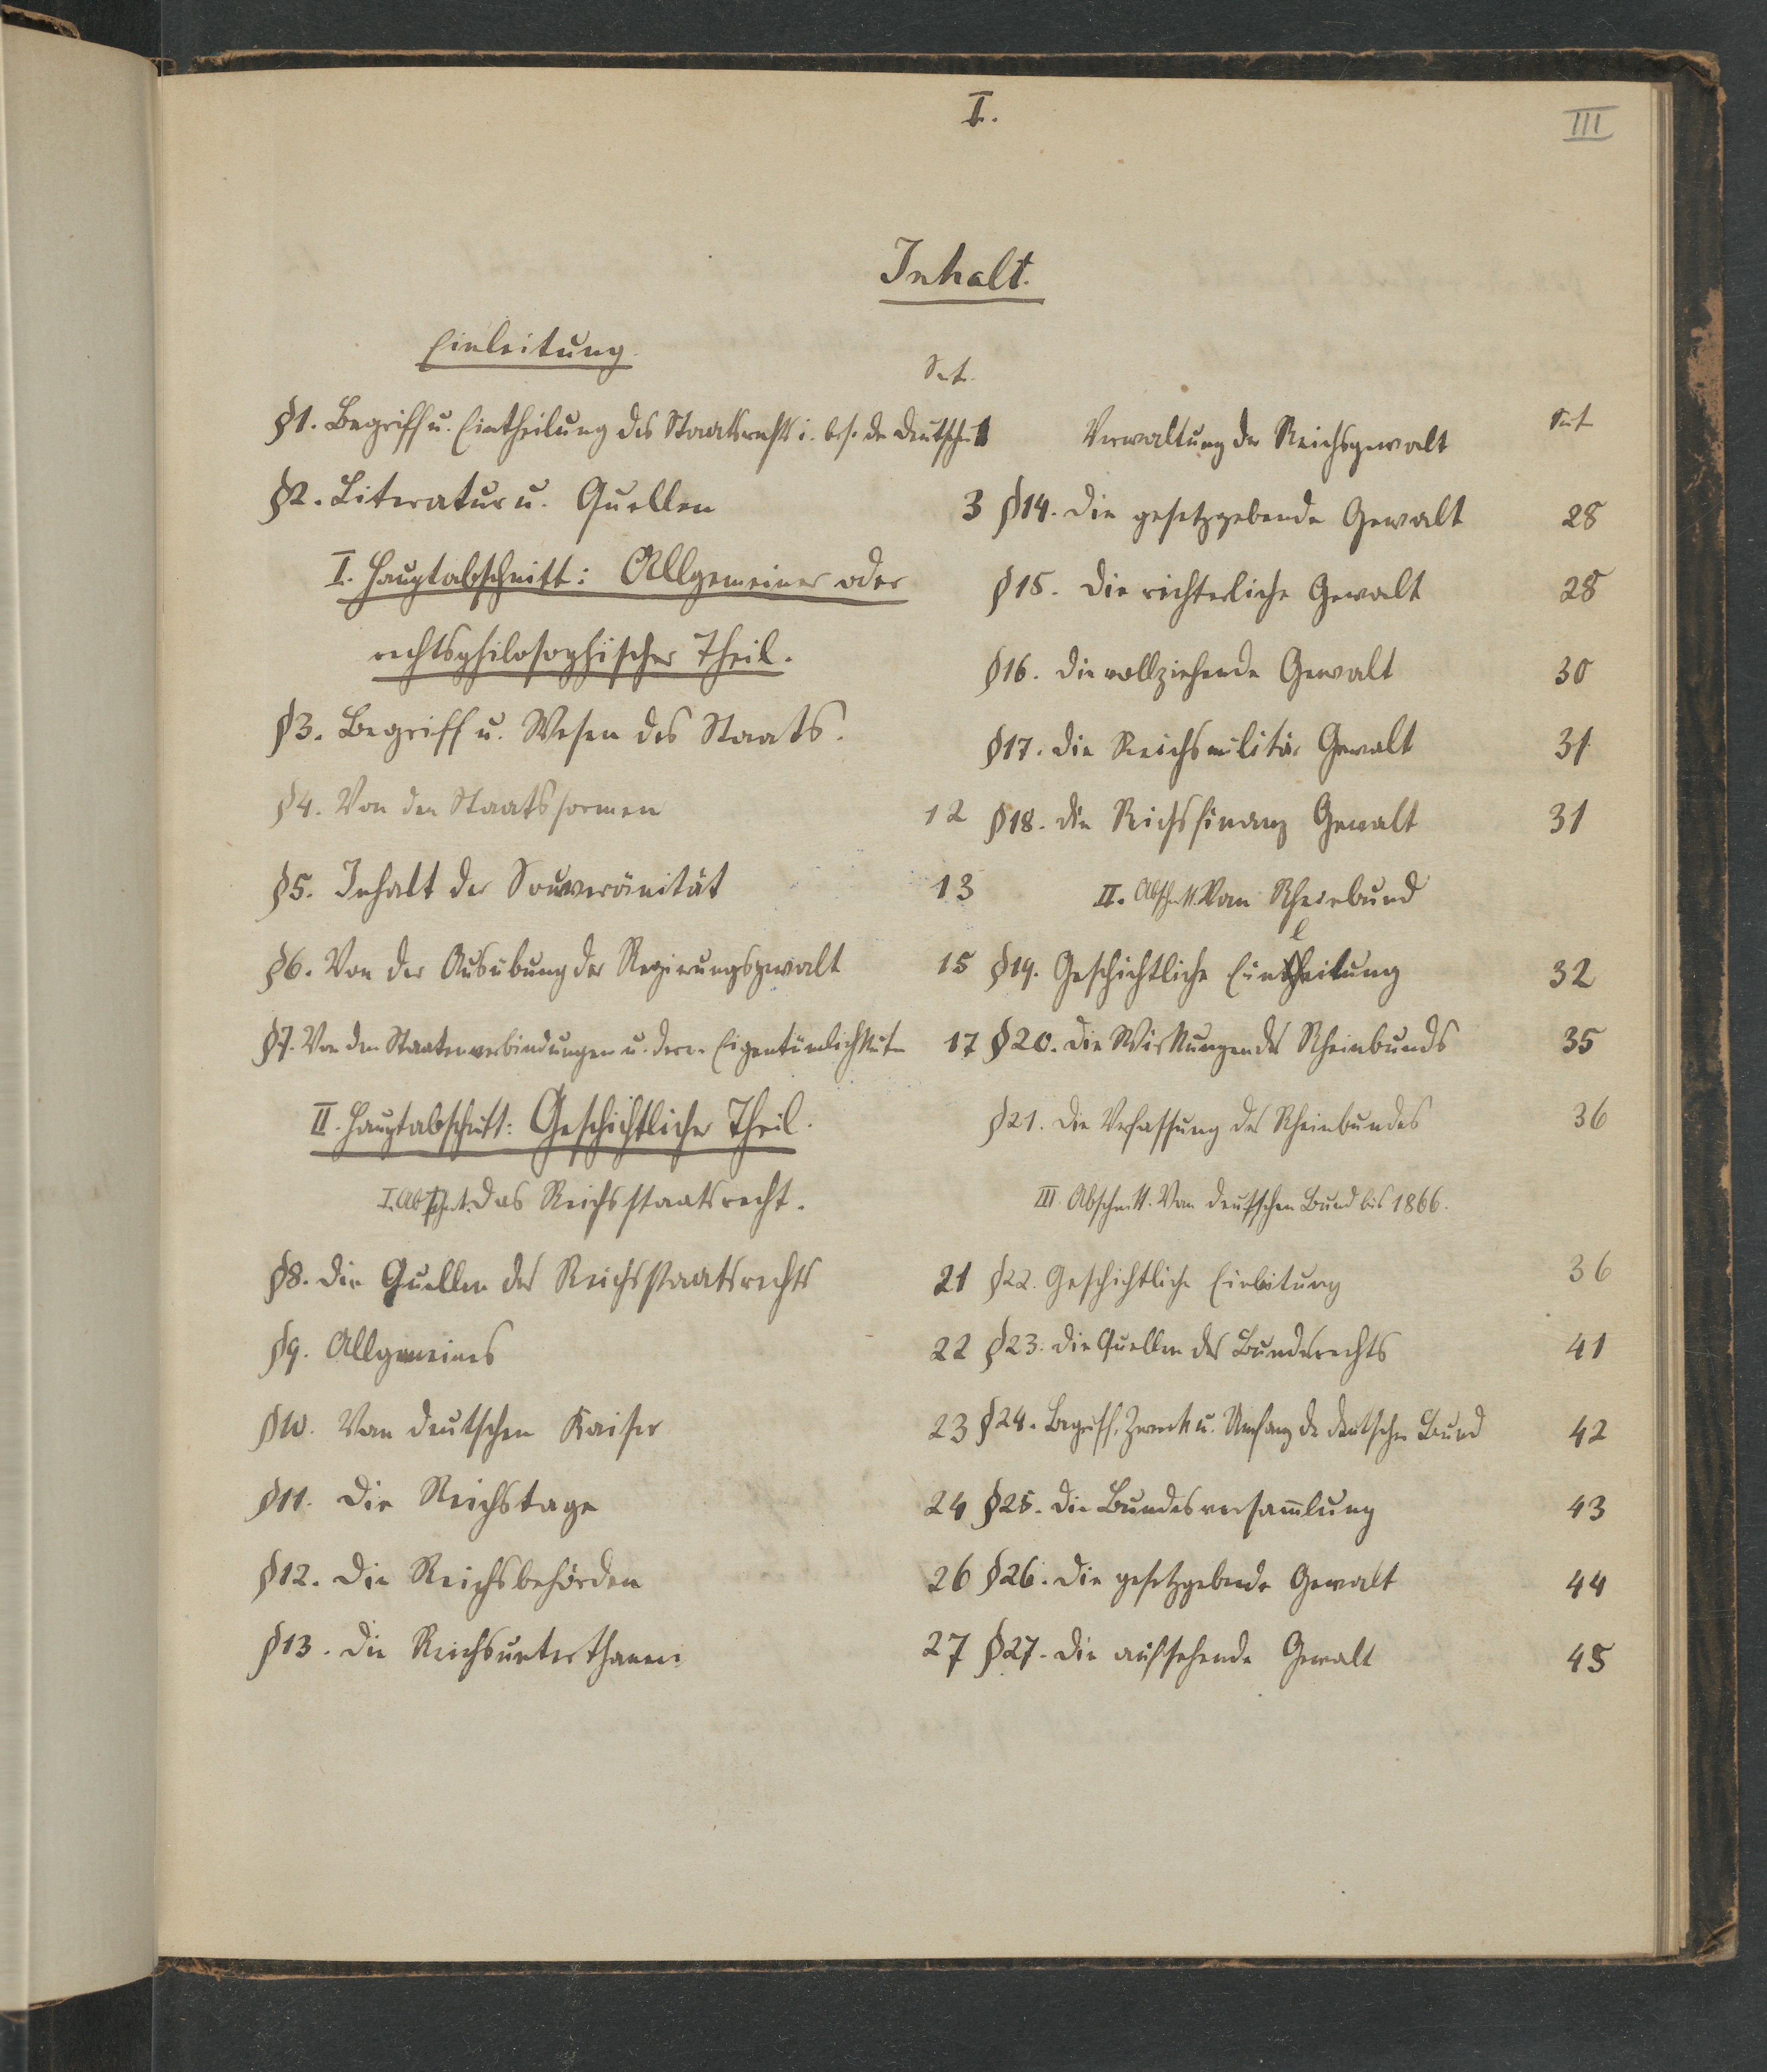 I.
III
Inhalt.
Einleitung.
Seit.
§1. Begriff u. Eintheilung des Staatsrechts i. bes. des deutschen 1
§2. Literatur u. Quellen 3
I. Hauptabschnitt: Allgemeiner oder
rechtsphilosophischer Theil.
§3. Begriff u. Wesen des Staats.
§4. Von den Staatsformen 12
§5. Inhalt der Souveränität 13
§6. Von der Ausübung der Regierungsgewalt 15
§7. Von den Staatenverbindungen u. deren Eigentümlichkeiten 17
II. Hauptabschnitt: Geschichtlicher Theil.
I. Abschnt. Das Reichsstaatsrecht.
§8. Die Quellen des Reichsstaatsrechts 21
§9. Allgemeines 22
§10. Vom deutschen Kaiser 23
§11. Die Reichstage 24
§12. Die Reichsbehörden 26
§13. Die Reichsunterthanen 27
Verwaltung der Reichsgewalt
Seit
§14. Die gesetzgebende Gewalt 28
§15. Die richterliche Gewalt 28
§16. Die vollziehende Gewalt 30
§17. Die Reichsmilitär Gewalt 31
§18. Die Reichsfinanz Gewalt 31
II. Abschntt. Vom Rheinbund
§19. Geschichtliche Einleitung 32
§20. Die Wirkungen des Rheinbunds 35
§21. Die Verfassung des Rheinbundes 36
III. Abschnitt. Vom deutschen Bund bis 1866.
§22. Geschichtliche Einleitung 36
§23. Die Quellen des Bundesrechts 41
§24. Begriff, Zweck u. Umfang des deutschen Bund 42
§25. Die Bundesversam̄lung 43
§26. Die gesetzgebende Gewalt 44
§27. Die aufsehende Gewalt 45